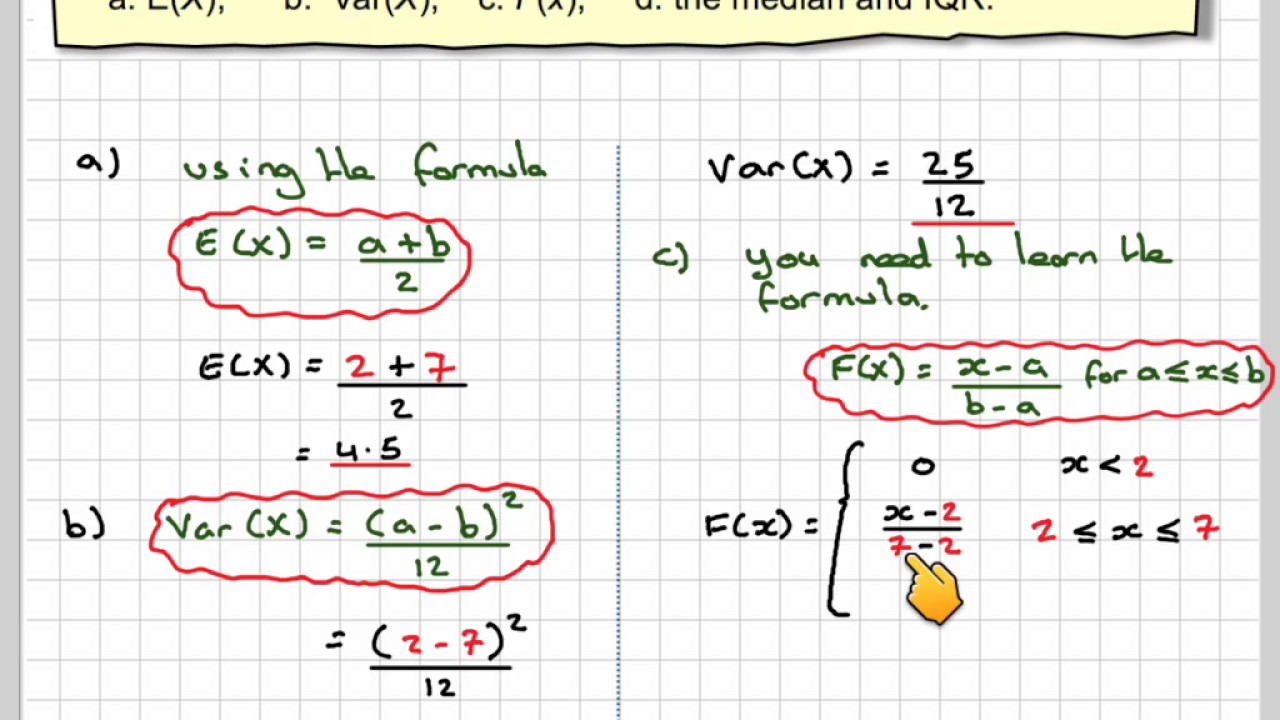 a. E(X), b. Var(X), c. F(x), d. the median and IQR.
a) using the formula
E(X) = a + b / 2
E(X) = 2 + 7 / 2
= 4.5
b) Var(X) = (a - b)² / 12
= (2 - 7)² / 12
Var(X) = 25 / 12
c) you need to learn the
formula.
F(x) = x - a / b - a for a ≤ x ≤ b
F(x) = { 0 x < 2
x - 2 / 7 - 2 2 ≤ x ≤ 7